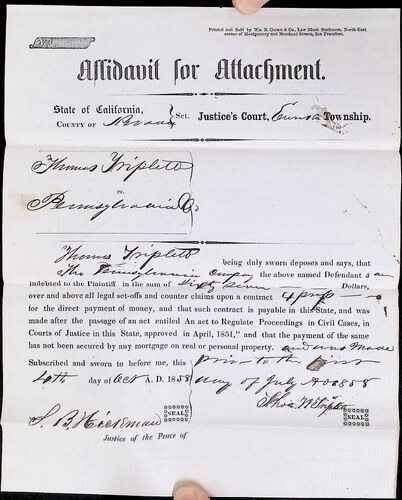 Printed and Sold by Wm. B. Cooke & Co., Law Blank Stationers, North-East
corner of Montgomery and Merchant Streets, San Francisco.
Affidavit for Attachment.
State of California,
COUNTY OF Nevada
} Sct. Justice's Court, Township.
Thomas Triplett
vs.
Pennsylvania Co
Thomas Triplett being duly sworn deposes and says, that
The Pennsylvanian Company the above named Defendant s
indebted to the Plaintiff in the sum of Sixty Seven Dollars,
over and above all legal set-offs and counter claims upon a contract
for the direct payment of money, and that such contract is payable in this State, and was
made after the passage of an act entitled An act to Regulate Proceedings in Civil Cases, in
Courts of Justice in this State, approved in April, 1851," and that the payment of the same
has not been secured by any mortgage on real or personal property. and was made
prior to the first
Subscribed and sworn to before me, this
4th day of Oct A. D. 1858
day of July AD 1858
Thos W Triplett
SEAL
S. B. Hickman
SEAL
Justice of the Peace of